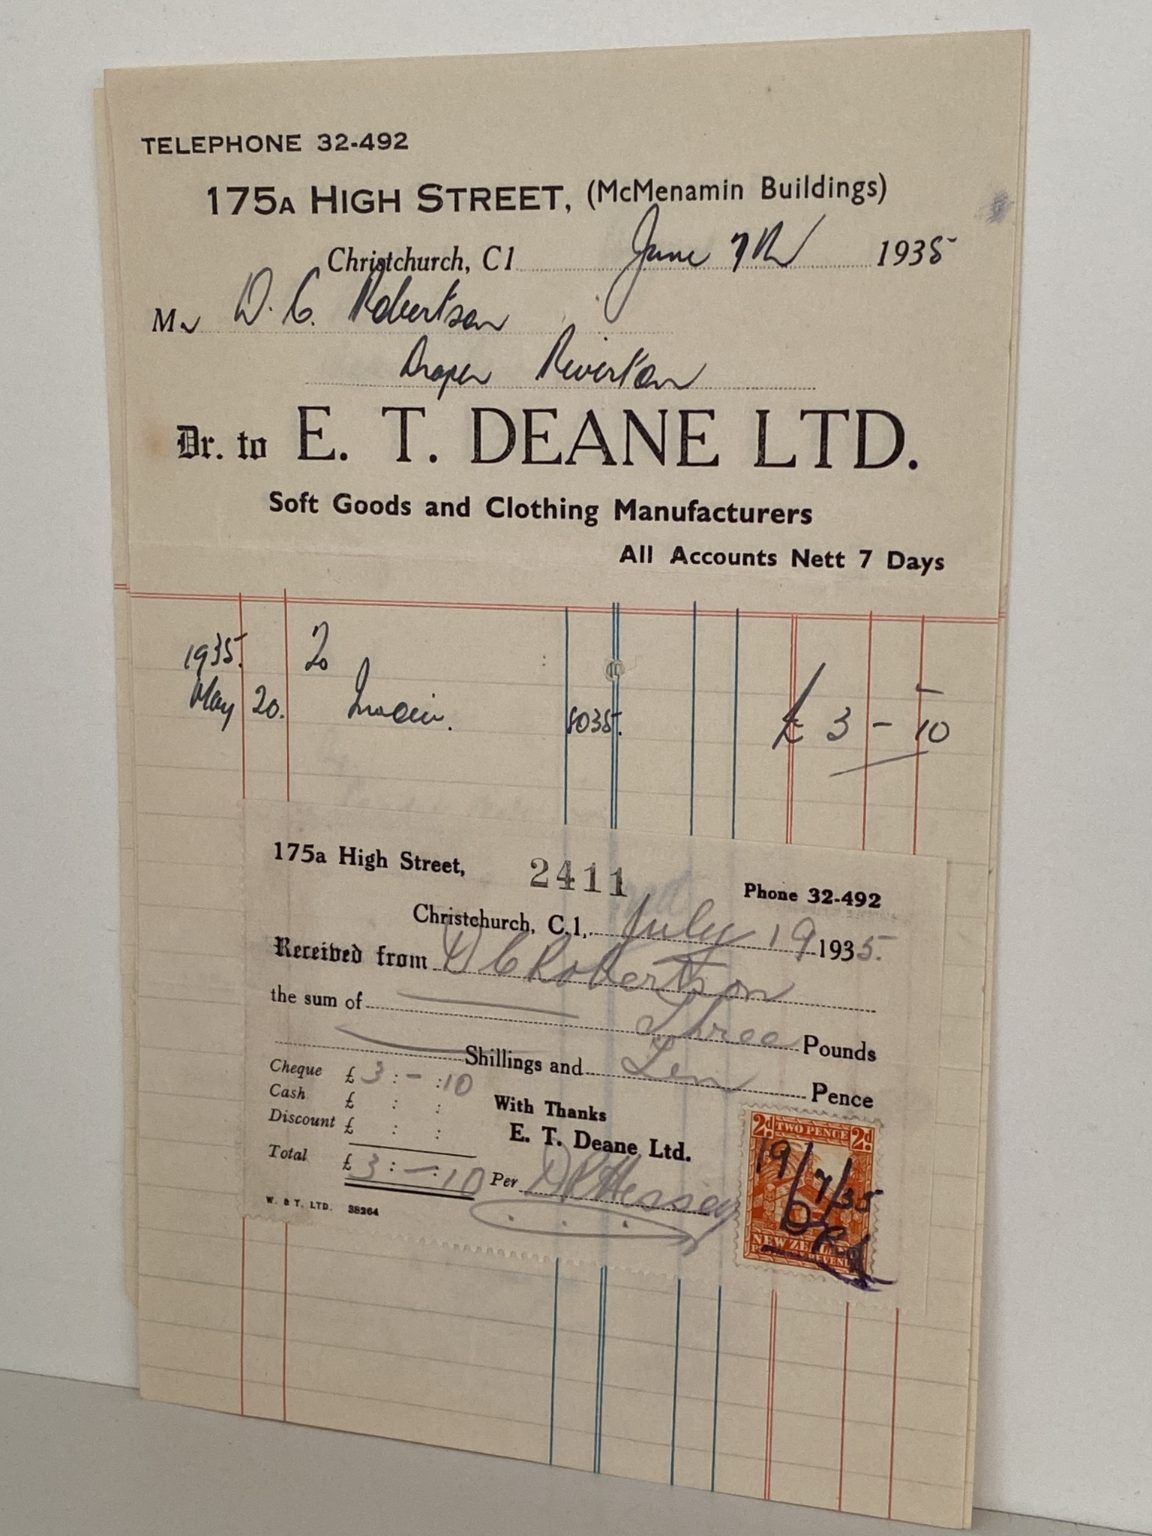 TELEPHONE 32-492
175A HIGH STREET, (McMenamin Buildings)
Christchurch, C1 June 7th 1935
Mr D. C. Robertson
Draper Riverton
Dr. to E. T. DEANE LTD.
Soft Goods and Clothing Manufacturers
All Accounts Nett 7 Days
1935. To
May 20. Invoice. 8035. £ 3 - 10
175a High Street, 2411 Phone 32-492
Christchurch, C.1, July 19 1935.
Received from D C Robertson
the sum of Three Pounds
Shillings and Ten Pence
Cheque £ 3 : - : 10
Cash £ : :
With Thanks
Discount £ : :
E. T. Deane Ltd.
Total £ 3 : - : 10 Per
W. & T. LTD. 38264
2d TWO PENCE 2d
19/7/35
NEW ZEALAND